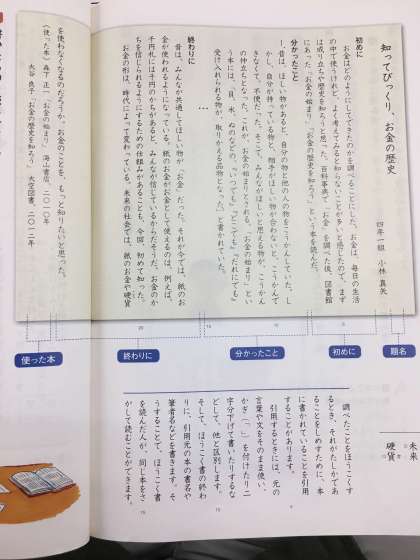 知ってびっくり、お金の歴史
四年一組 小林 真矢
初めに
お金はどのようにしてできたのかを調べることにした。お金は、毎日の生活
の中で使うけれど、考えてみると知らないことが多いと感じたので、まず
は成り立ちや歴史を知ろうと思った。百科事典で「お金」を調べた後、図書館
にあった、「お金の始まり」「お金の歴史を知ろう」という本を読んだ。
分かったこと
昔は、ほしい物があると、自分の物と他の人の物をこうかんしていた。し
かし、自分が持っている物と、相手がほしい物が合わないと、こうかんで
きなくて、不便だった。そこで、みんながほしいと思える物が、こうかん
の仲立ちとなった。これが、お金の始まりとされる。「お金の始まり」とい
う本には、「貝、米、ぬのなどの、『いつでも』『どこでも』『だれにでも』
受け入れられる物が、取りかえる品物となった。」と書かれていた。
…
終わりに
昔は、みんなが共通してほしい物が「お金」だった。それが今では、紙のお
金が使われるようになっている。紙のお金がお金として使えるのは、例えば、
千円札には千円のかちがあると、みんなが信じているからだそうだ。お金のか
ちを信じられるようにするための仕組みがあることも、今回、初めて知った。
お金の形は、時代によって変わっている。未来の社会では、紙のお金や硬貨
を使わなくなるのだろうか。お金のことを、もっと知りたいと思った。
〈使った本〉森下 正一「お金の始まり」海山書店、二〇一〇年
大谷 良子「お金の歴史を知ろう」大空図書、二〇一二年
題名
初めに
分かったこと
終わりに
使った本
未来
硬貨
調べたことをほうこくす
るとき、それがたしかであ
ることをしめすために、本
に書かれていることを引用
することがあります。
引用するときには、元の
言葉や文をそのまま使い、
かぎ(「」)を付けたり二
字分下げて書いたりするな
どして、他と区別します。
そして、ほうこく書の終わ
りに、引用元の本の書名や
筆者名などを書きます。そ
うすることで、ほうこく書
を読んだ人が、同じ本をさ
がして読むことができます。